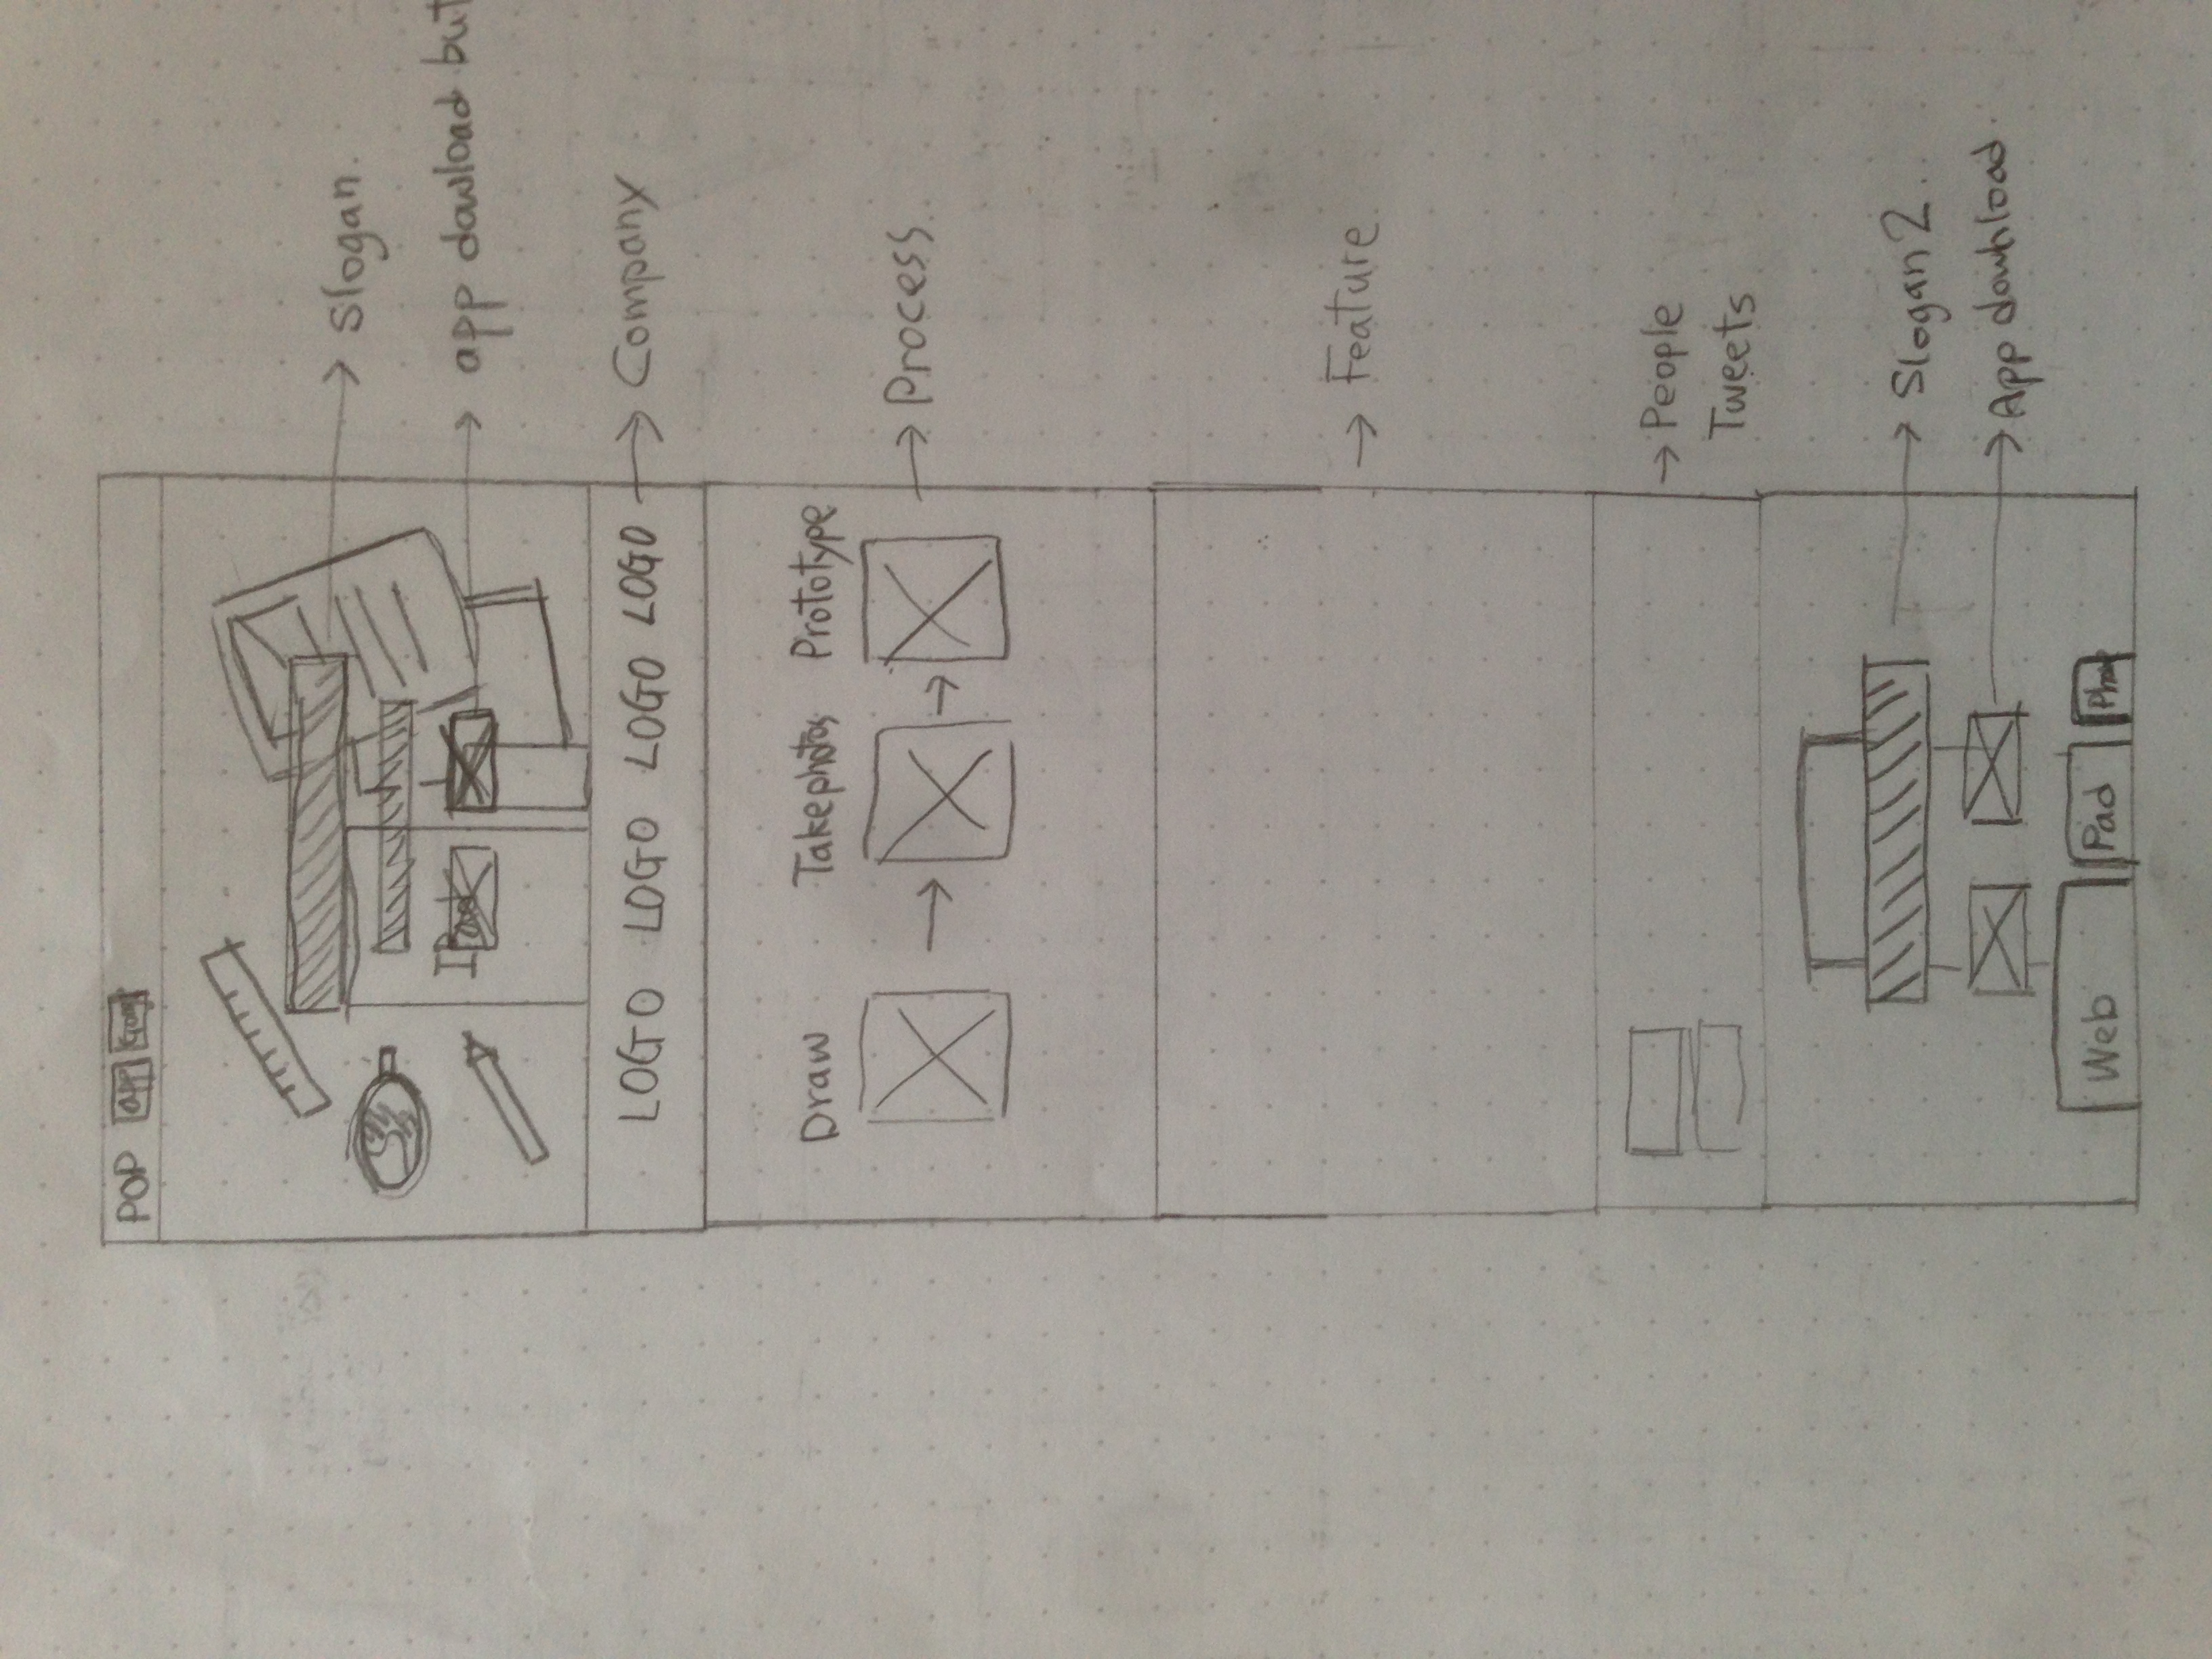 POP app
Slogan.
IPad
app dowload but
LOGO LOGO LOGO LOGO
Company
Draw Take photos Prototype
Process
Feature
People
Tweets
Slogan 2.
App download
Web Pad Phone